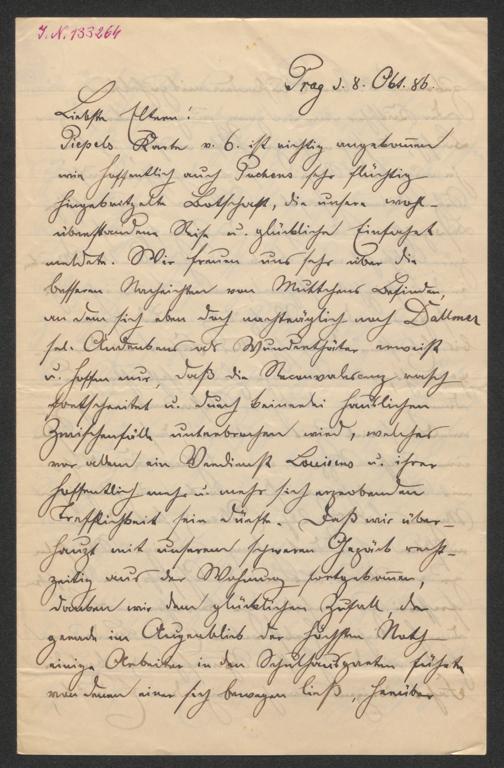 J. N. 133264
Prag d. 8. Okt. 86.
Liebste Eltern!
Piepels Karte v. 6. ist richtig angekommen
wie hoffentlich auch sehr flüchtig
hingekritzelte Botschaft, die unsere wohl-
überstandene Reise u. glückliche Einfahrt
meldete. Wir freuen uns sehr über die
besseren Nachrichten von Muttchens Befinden,
an dem sich eben doch nachträglich noch
sel. Andenkens als Wunderthäter erweist
u. hoffen nur, daß die Reconvalescenz rasch
fortschreitet u. durch keinerlei häuslichen
Zwischenfälle unterbrochen wird, welches
vor allem ein Verdienst Louisens u. ihrer
hoffentlich mehr u. mehr sich erprobenden
Trefflichkeit sein dürfte. Daß wir über-
haupt mit unserem schweren Gepäck recht-
zeitig aus der Wohnung fortgekommen,
danken wir dem glücklichen Zufall, der
gerade im Augenblick der höchsten Noth
einige Arbeiter in den Schulhausgarten führte
von denen einer sich bewegen ließ, herüber